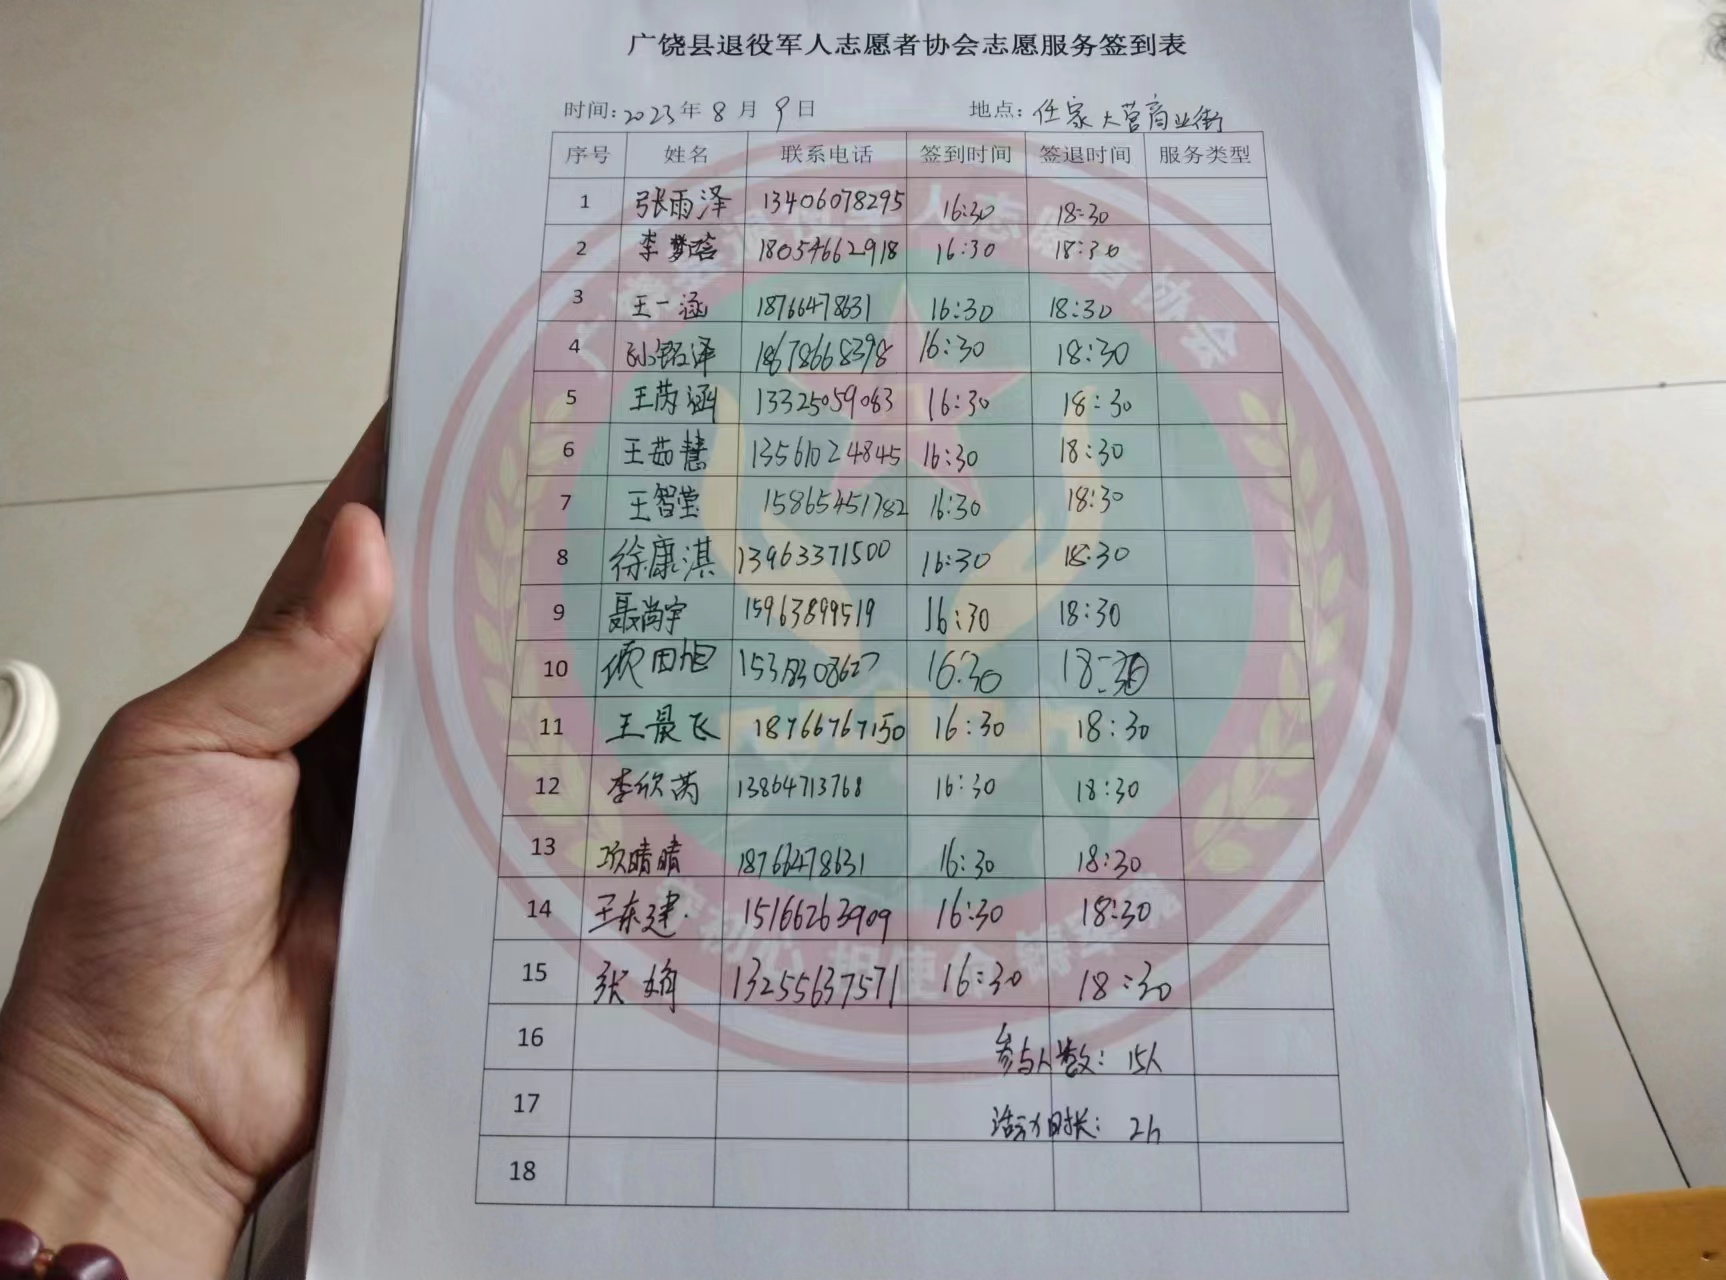 广饶县退役军人志愿者协会志愿服务签到表
时间: 2023年 8 月 9 日 地点: 任家大营商业街
序号 姓名 联系电话 签到时间 签退时间 服务类型
1 张雨泽 13406078295 16:30 18:30
2 李梦晗 18054662918 16:30 18:30
3 王一涵 18766478631 16:30 18:30
4 孙铭泽 18678668398 16:30 18:30
5 王芮涵 13325059083 16:30 18:30
6 王茹慧 13561024845 16:30 18:30
7 王智莹 15865451782 16:30 18:30
8 徐康淇 13963371500 16:30 18:30
9 聂尚宇 15963899519 16:30 18:30
10 项田旭 16:30 18:30
11 王晨飞 18766767150 16:30 18:30
12 李欣芮 13864713768 16:30 18:30
13 项晴晴 18766478631 16:30 18:30
14 王东建 15166263909 16:30 18:30
15 张娟 13255637571 16:30 18:30
16 参与人数: 15人
17 活动时长: 2h
18